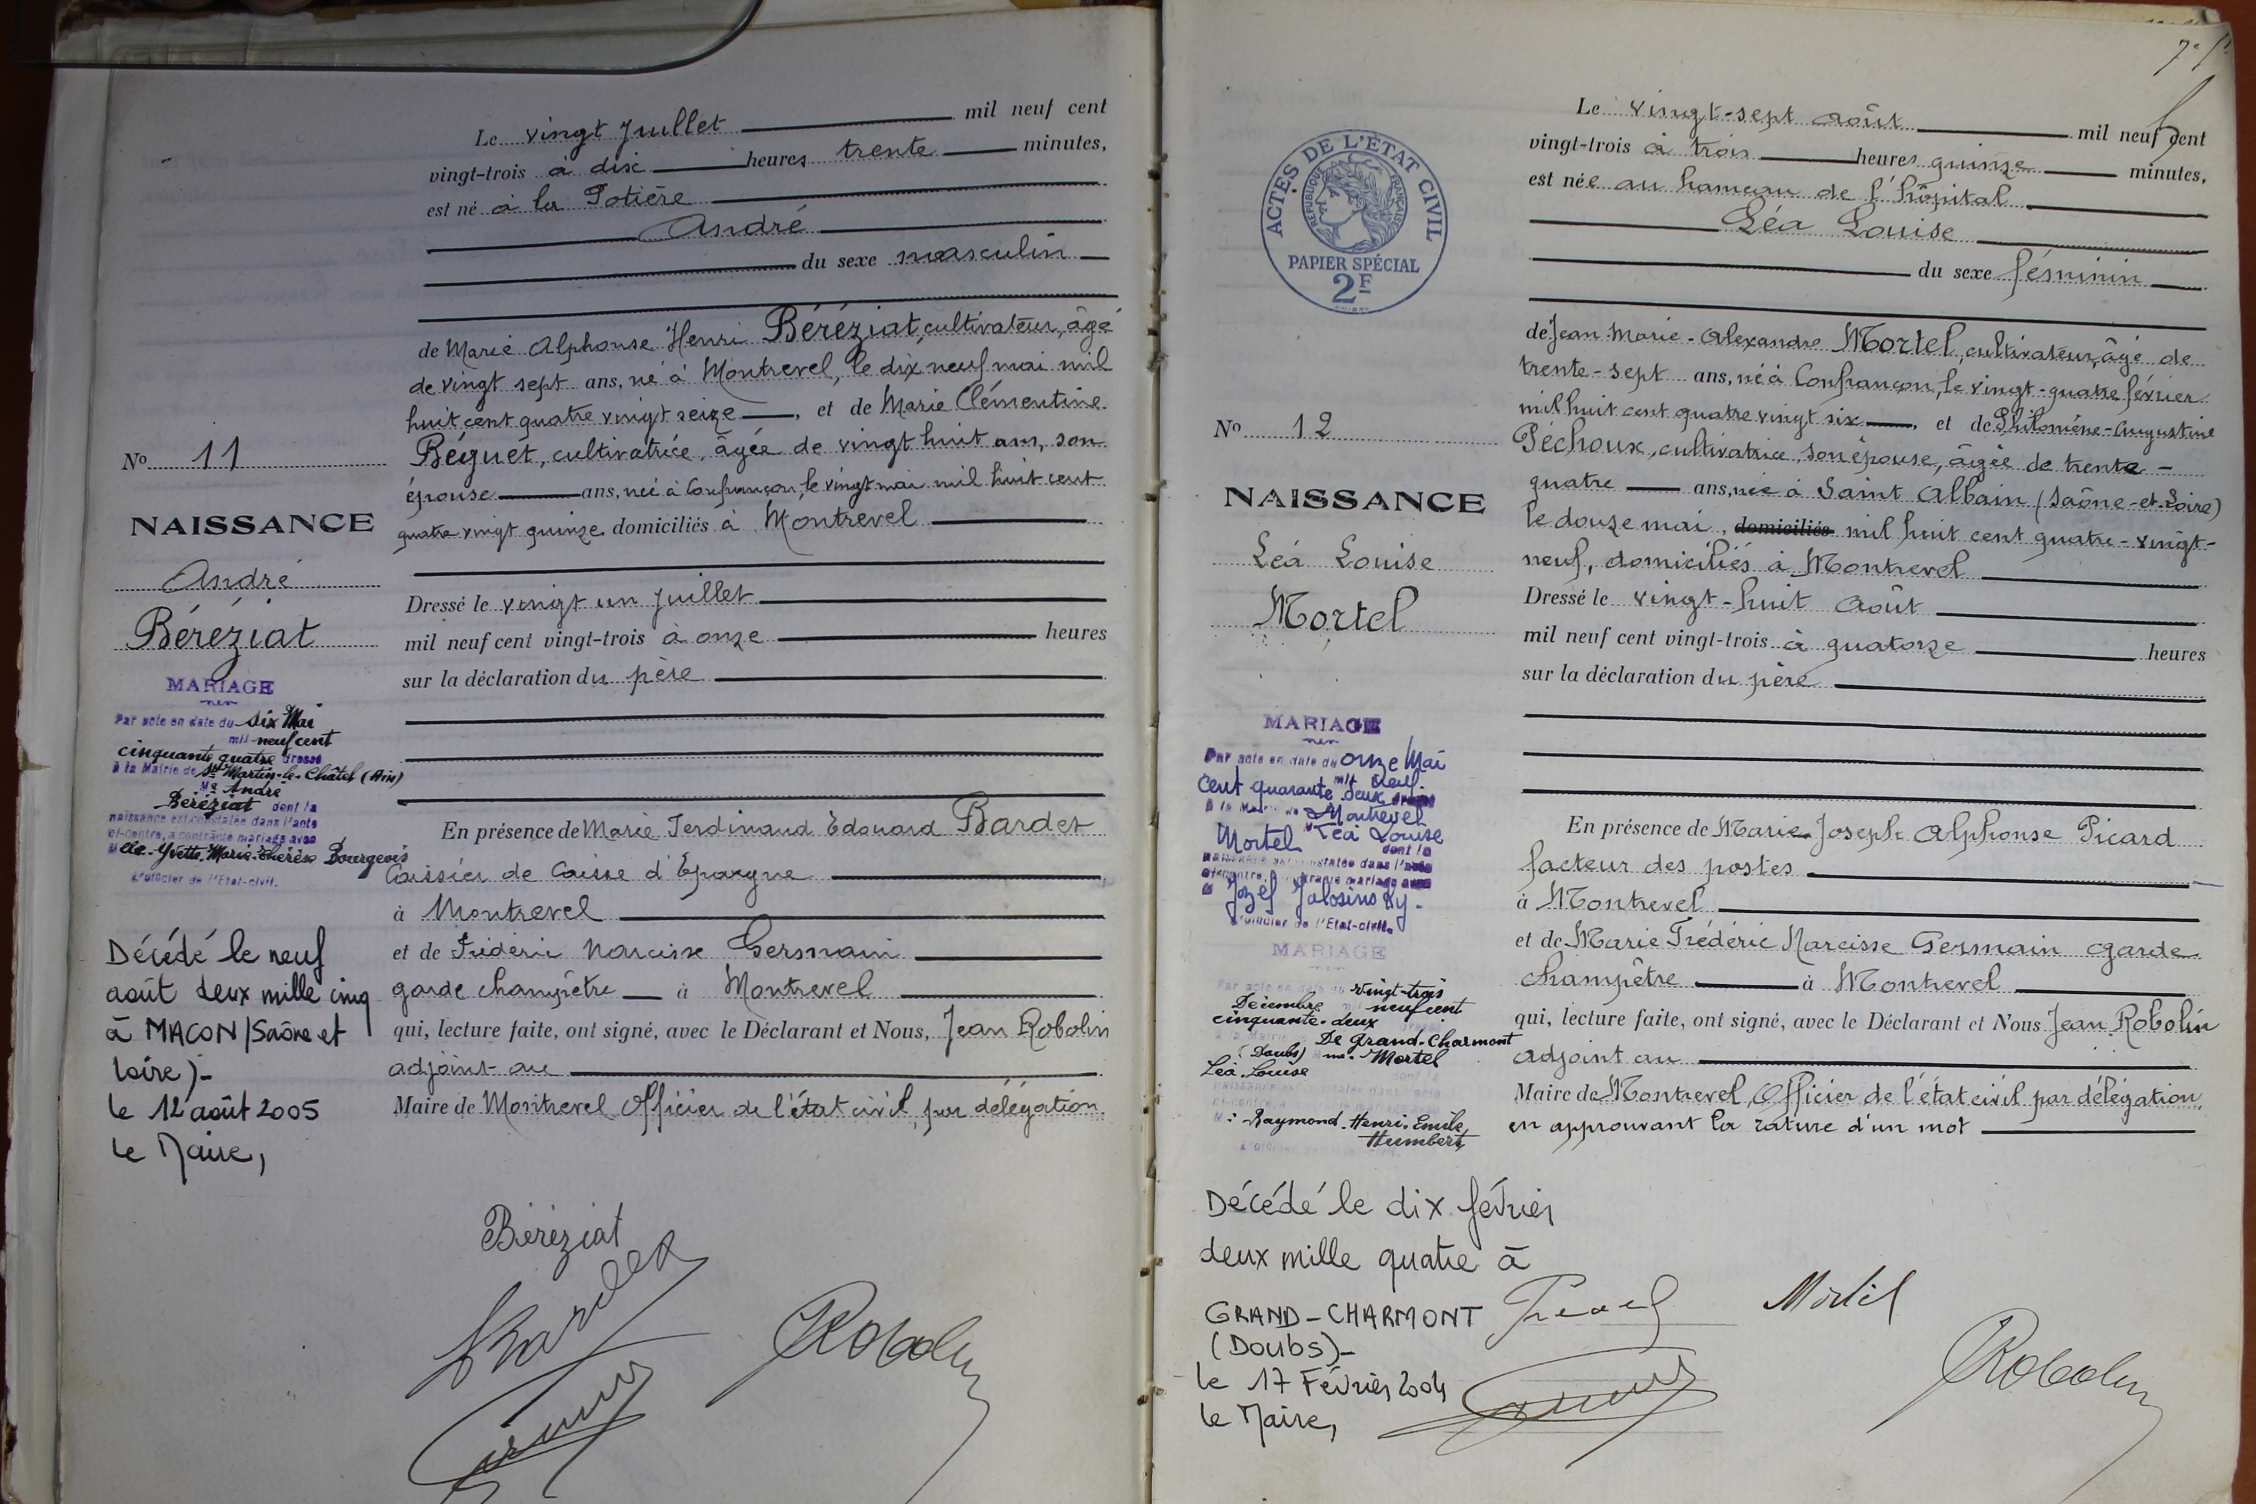 Le vingt juillet mil neuf cent
vingt-trois à dix heures trente minutes,
est né à la Potière
André
du sexe masculin
de Marie Alphonse Henri Béréziat, cultivateur, âgé
de vingt sept ans, né à Montrevel, le dix neuf mai mil
huit cent quatre vingt seize, et de Marie Clémentine
Béguet, cultivatrice, âgée de vingt huit ans, son
épouse ans, née à Confrançon, le vingt mai mil huit cent
quatre vingt quinze domiciliés à Montrevel
Dressé le vingt un juillet
mil neuf cent vingt-trois à onze heures
sur la déclaration du père
En présence de Marie Ferdinand Edouard Bardet
Caissier de Caisse d'Epargne
à Montrevel
et de Frédéric Narcisse Germain
garde champêtre à Montrevel
qui, lecture faite, ont signé, avec le Déclarant et Nous, Jean Robolin
adjoint au
Maire de Montrevel Officier de l'état civil, par délégation.
No 11
NAISSANCE
André
Béréziat
MARIAGE
Par acte en date du dix Mai
mil neuf cent
cinquante quatre dressé
à la Mairie de St Martin-le-Châtel (Ain)
Mr André
Béréziat dont la
naissance est constatée dans l'acte
ci-contre, a contracté mariage avec
Melle Yvette Marie-Thérèse Bourgeois
L'officier de l'Etat-civil.
Décédé le neuf
août deux mille cinq
à MACON (Saône et
loire)-
le 12 août 2005
le Maire,
Béréziat
Bardet
Robolin
Le vingt-sept août mil neuf cent
vingt-trois à trois heures quinze minutes,
est née au hameau de l'hôpital
Léa Louise
du sexe féminin
de Jean Marie-Alexandre Mortel, cultivateur, âgé de
trente-sept ans, né à Confrançon, le vingt-quatre février
mil huit cent quatre vingt six, et de Philomène-Augustine
Péchoux, cultivatrice, son épouse, âgée de trente-
quatre ans, née à Saint Albain (Saône-et-Loire)
le douze mai, domiciliés mil huit cent quatre-vingt-
neuf, domiciliés à Montrevel
Dressé le vingt-huit août
mil neuf cent vingt-trois à quatorze heures
sur la déclaration du père
En présence de Marie-Joseph Alphonse Picard
facteur des postes
à Montrevel
et de Marie Frédéric Narcisse Germain garde
champêtre à Montrevel
qui, lecture faite, ont signé, avec le Déclarant et Nous Jean Robolin
adjoint au
Maire de Montrevel, Officier de l'état civil par délégation,
en approuvant la rature d'un mot
ACTES DE L'ÉTAT CIVIL
RÉPUBLIQUE FRANÇAISE
PAPIER SPÉCIAL
2F
No 12
NAISSANCE
Léa Louise
Mortel
MARIAGE
Par acte en date du onze Mai
mil neuf
cent quarante deux dressé
à la Mairie de Montrevel
Léa Louise
Mortel dont la
naissance est constatée dans l'acte
ci-contre, a contracté mariage avec
Jozef Jalosinsky.
L'officier de l'Etat-civil.
MARIAGE
Par acte en date du vingt-trois
Décembre mil neuf cent
cinquante-deux
De Grand-Charmont
(Doubs) Mortel
Léa Louise
Raymond-Henri-Emile
Humbert
Décédé le dix février
deux mille quatre à
GRAND-CHARMONT
(Doubs)-
le 17 Février 2004
le Maire,
Picard
Mortel
Robolin